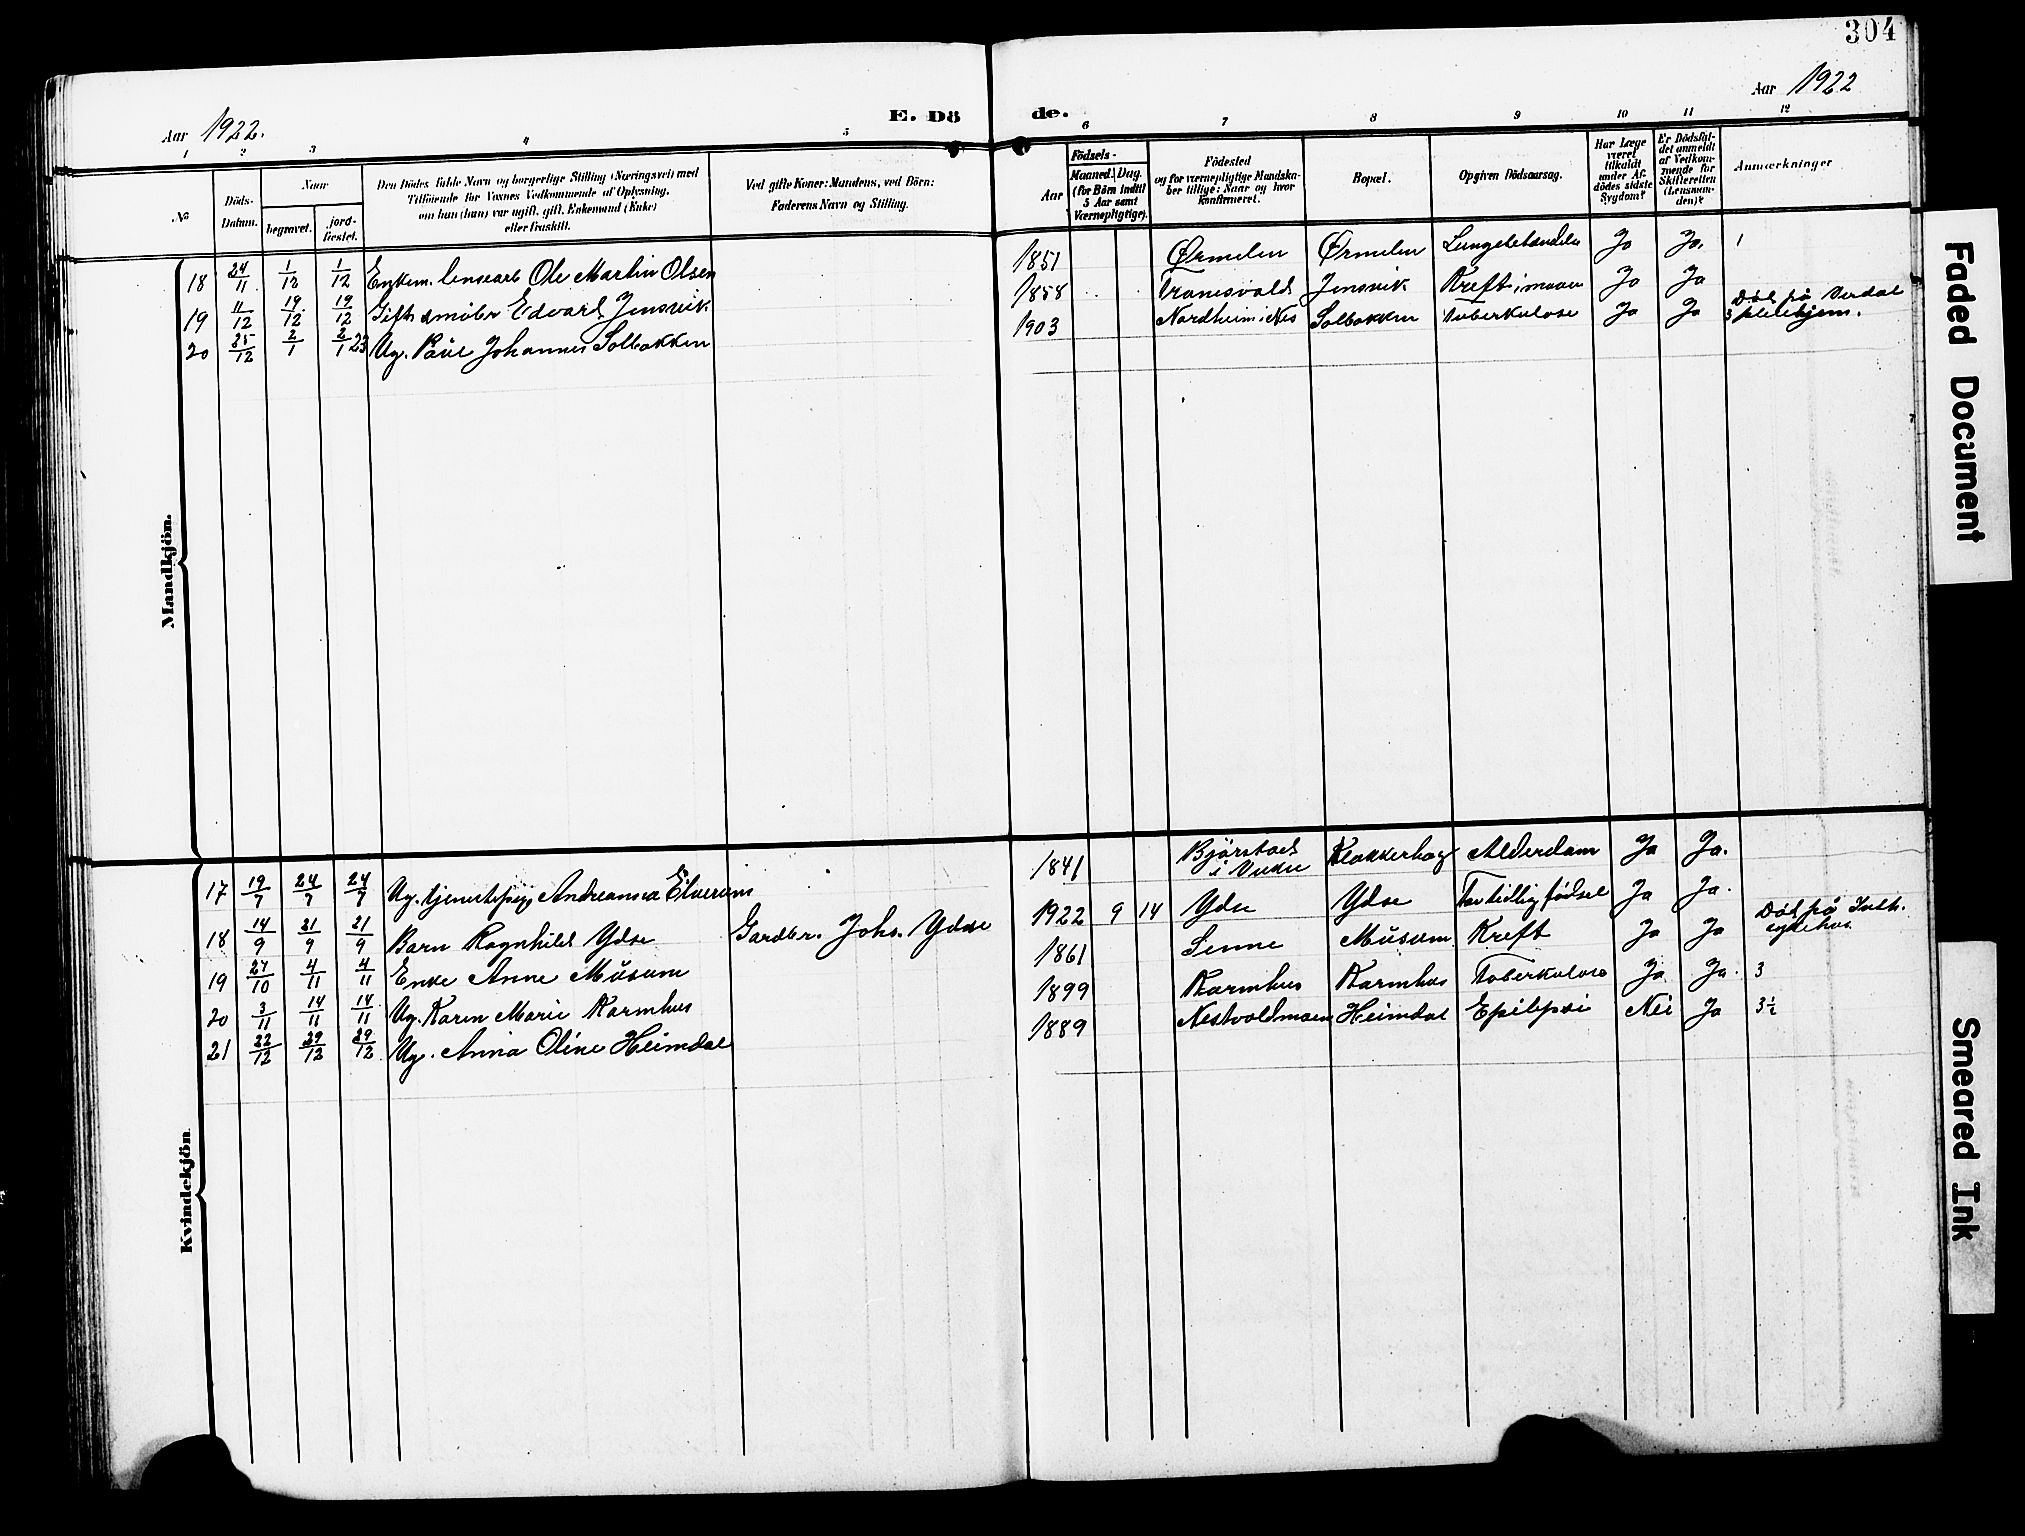 304
Aar 1922.
E. Dö de.
Aar 1922
1 2 3 4 5 6 7 8 9 10 11 12
№
Döds-Datum.
Naar
begravet.
jordfæstet.
Den Dödes fulde Navn og borgerlige Stilling (Næringsvei) med
Tilföiende for Voxnes Vedkommende af Oplysning,
om han (hun) var ugift, gift, Enkemand (Enke)
eller fraskilt.
Ved gifte Koner: Mandens, ved Börn:
Faderens Navn og Stilling.
Födsels-
Aar
Maaned. Dag.
(for Börn indtil
5 Aar samt
Værnepligtige).
Födested
og for værnepligtige Mandskaber tillige: Naar og hvor
konfirmeret.
Bopæl.
Opgiven Dödsaarsag.
Har Læge
været
tilkaldt
under Afdödes sidste
Sygdom?
Er Dödsfaldet anmeldt
af Vedkommende for
Skifteretten
(Lensmanden)?
Anmærkninger
Mandkjön.
18 24/11 1/12 1/12 Enkem. Ole Martin Olsen 1851 Ørmelen Ørmelen Lungebetændelse Ja Ja. 1
19 11/12 19/12 19/12 Gift Edvard Jensvik 1858 Tranesvald Jensvik Kreft i maven Ja Ja
20 25/12 2/1 2/1 23 Ug. Paul Johannes Solbakken 1903 Nordheim i Nes Solbakken Tuberkulose Ja Ja 3 Död på Verdal
pleiehjem.
Kvindekjön
17 19/7 24/7 24/7 Ug. tjenestepige Andreanna Elverum 1841 Bjørstad
i Vuku Klokkerhaug Alderdom Ja Ja.
18 14/9 21/9 21/9 Barn Ragnhild Ydse Gardbr. Johs. Ydse 1922 9 14 Ydse Ydse For tidlig fødsel Ja Ja.
19 27/10 4/11 4/11 Enke Anne Musum 1861 Musum Kreft Ja Ja Död på Inth.
sykehus
20 3/11 14/11 14/11 Ug. Karen Marie Karmhus 1899 Karmhus Karmhus Tuberkulose Ja Ja. 3
21 22/12 29/12 29/12 Ug. Anna Oline Heimdal 1889 Nestvoldmoen Heimdal Epilepsi Nei Ja 3½
Faded Document
Smeared Ink